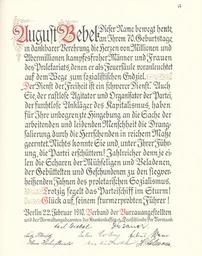 August Bebel. Dieser Name bewegt heute,
an Ihrem 70. Geburtstage
in dankbarer Verehrung die Herzen von Millionen und
Abermillionen kampfesfroher Männer und Frauen
des Proletariats, denen er als Feuersäule voranleuchtet
auf dem Wege zum sozialistischen Endziel.
Der Dienst der Freiheit ist ein schwerer Dienst! Auch
Sie, der rastlose Agitator und Organisator der Partei,
der furchtlose Ankläger des Kapitalismus, haben
für Ihre unbegrenzte Hingebung an die Sache der
arbeitenden und leidenden Menschheit den Dank der Drang-
salierung durch die Herrschenden in reichem Maße
geerntet. Nicht konnte Sie und, unter Ihrer Füh-
rung, die Partei erschüttern! Zahlreicher denn je ei-
len die Scharen der Mühseligen und Beladenen,
der Gebüttelten und Geschundenen zu den siegver-
heißenden Fahnen des proletarischen Sozialismus.
Trotzig fegelt das Parteischiff im Sturm!
Glück auf seinem sturmerprobten Führer!
Berlin 22. Februar 1910. Verband der Bureauangestellten
und der Verwaltungsbeamten der Krankenkassen